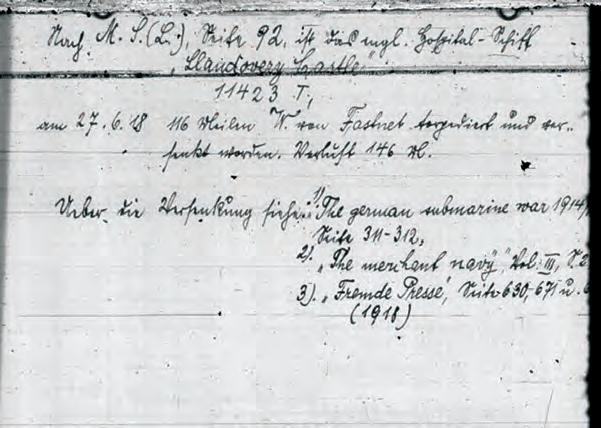 Nach M. S. (L.), Seite 92, ist das engl. Hospital-Schiff
"Llandovery Castle"
11423 T,
am 27.6.18 116 Meilen W. von Fastnet torpediert und ver-
senkt worden. Verlust 146 M.
Ueber die Versenkung siehe: 1) "The german submarine war 1914/
Seite 311-312,
2). "The merchant navy", Vol. III, S.
3). "Fremde Presse", Seite 630, 671 u.
(1918)